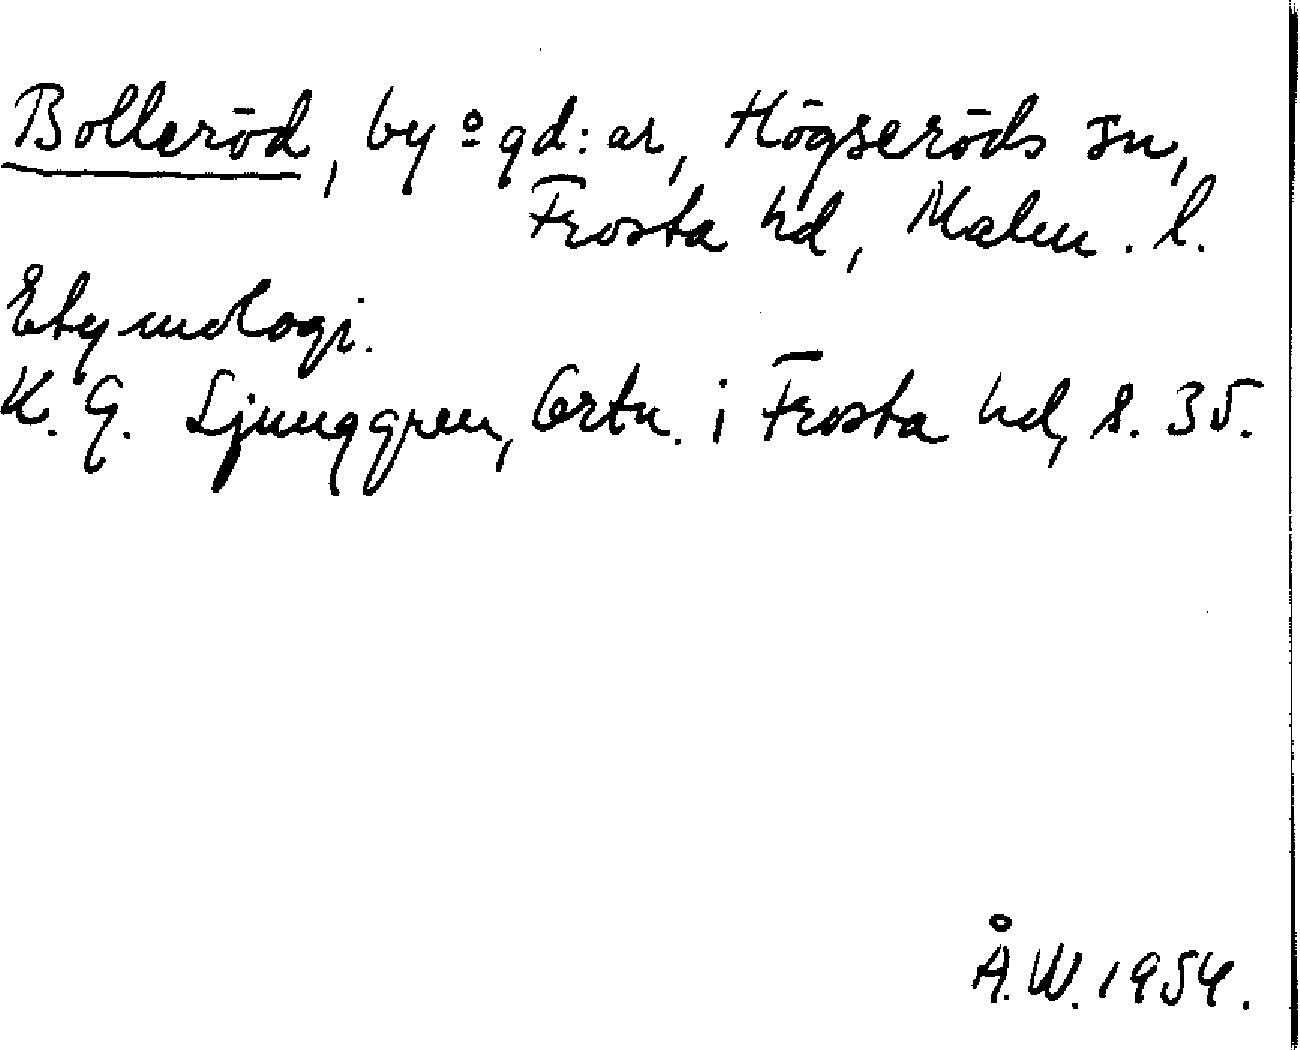 Bolleröd, by o gd:ar, Högseröds sn,
Frosta hd, Malm. l.
Etymologi.
K. G. Ljunggren, Ortn. i Frosta hd, s. 35.
Å.W. 1954.